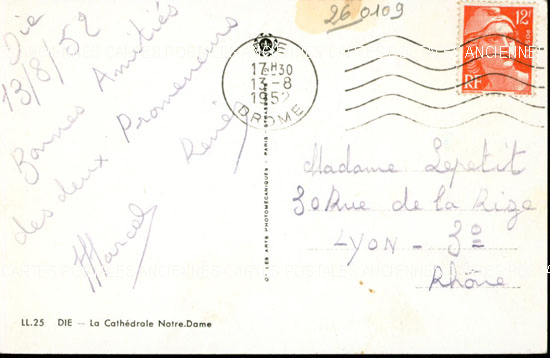 Die
13/8/52
Bonnes Amitiés
des deux Promeneurs
René
Marcel
26 0109
DIE
17H30
13-8
1952
DROME
12F
RF
Madame Lepetit
30 Rue de la Rize
LYON - 3e
Rhône
Cie LES ARTS PHOTOMÉCANIQUES - PARIS - STRASBOURG
LL.25 DIE — La Cathédrale Notre-Dame
CARTES POSTALES ANCIENNES